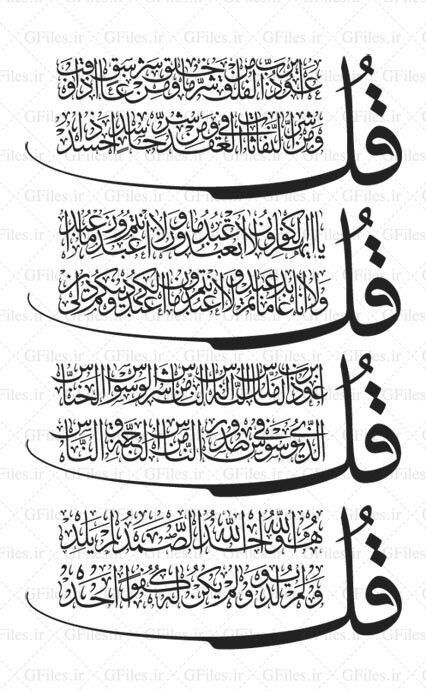 قل
اعوذ برب الفلق من شر ما خلق و من شر غاسق اذا وقب
و من شر النفاثات فی العقد و من شر حاسد اذا حسد
قل
یا ایها الکافرون لا اعبد ما تعبدون و لا انتم عابدون ما اعبد
و لا انا عابد ما عبدتم و لا انتم عابدون ما اعبد لکم دینکم ولی دین
قل
اعوذ برب الناس ملک الناس اله الناس من شر الوسواس الخناس
الذی یوسوس فی صدور الناس من الجنة و الناس
قل
هو الله احد الله الصمد لم یلد
و لم یولد و لم یکن له کفوا احد
GFiles.ir